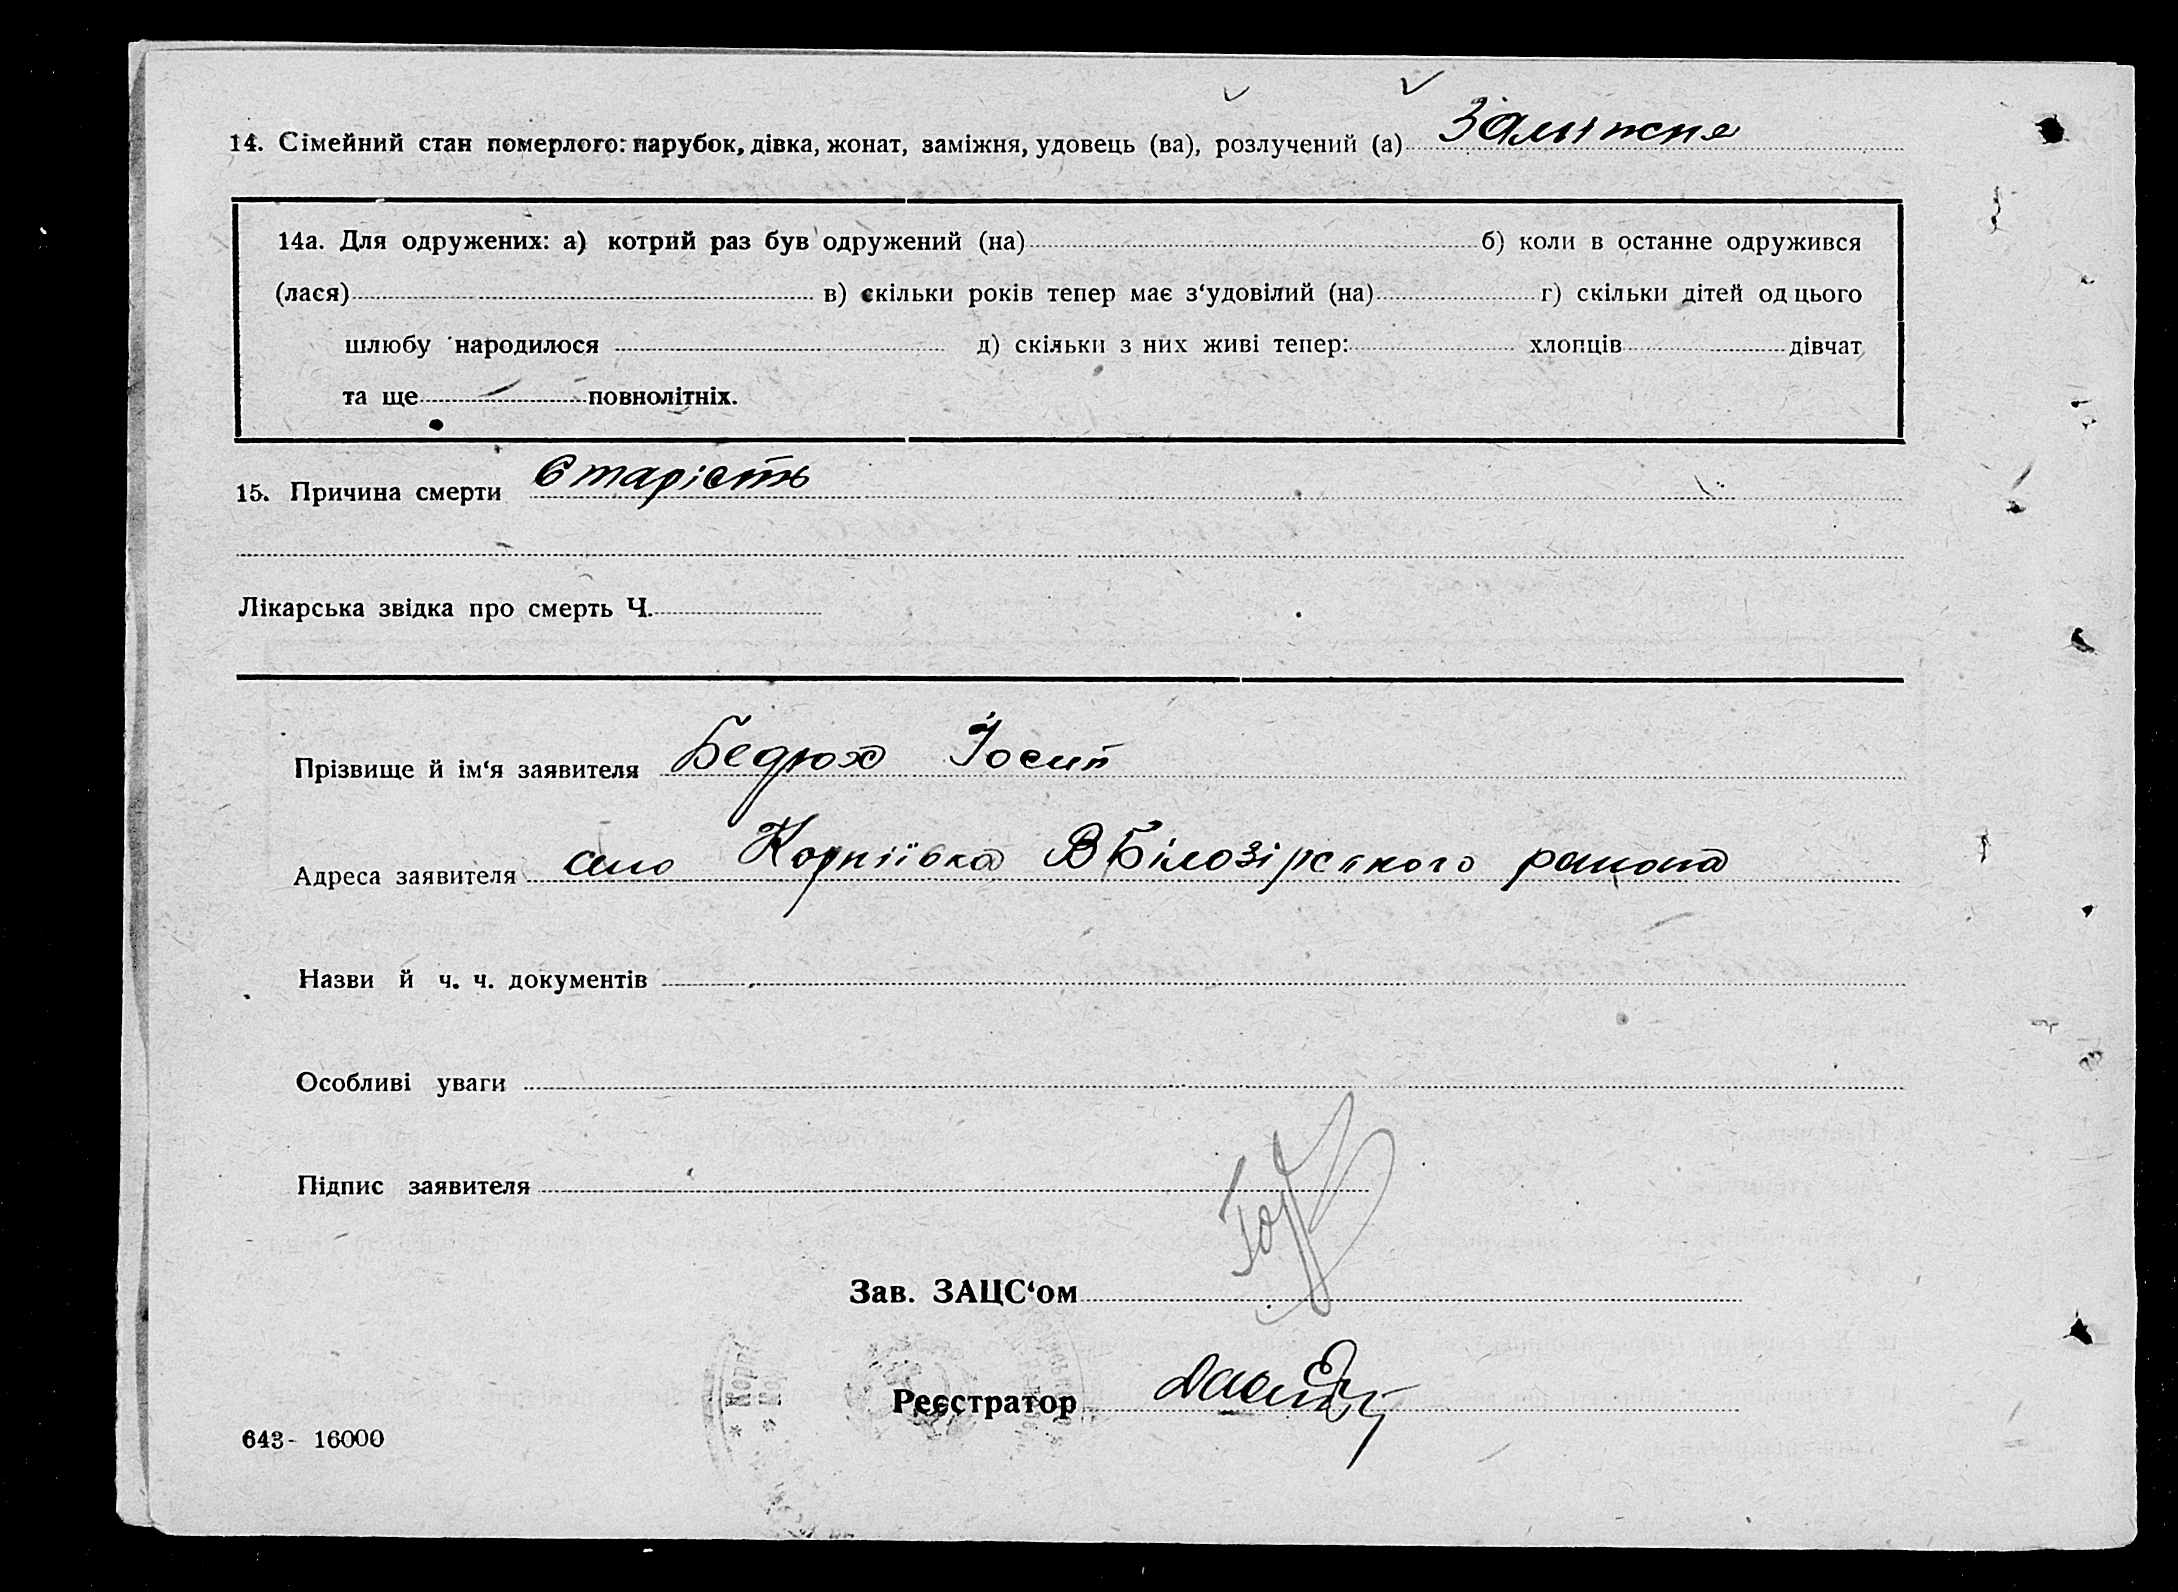 14. Сімейний стан померлого: парубок, дівка, жонат, заміжня, удовець (ва), розлучений (а) Заміжня
14а. Для одружених: а) котрий раз був одружений (на) б) коли в останне одружився
(лася) в) скільки років тепер має з‘удовілий (на) г) скільки дітей од цього
шлюбу народилося д) скільки з них живі тепер: хлопців дівчат
та ще повнолітніх.
15. Причина смерти Старість
Лікарська звідка про смерть Ч.
Прізвище й ім‘я заявителя Бедрох Йосип
Адреса заявителя село Корніївка ВБілозірського района
Назви й ч. ч. документів
Особливі уваги
Підпис заявителя
Зав. ЗАЦС‘ом
Реєстратор
643- 16000